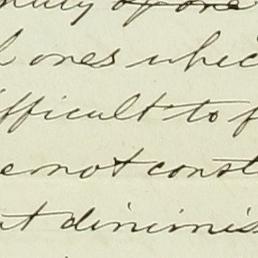 of one
ones whic
fficult to f
e not const
ut diminis